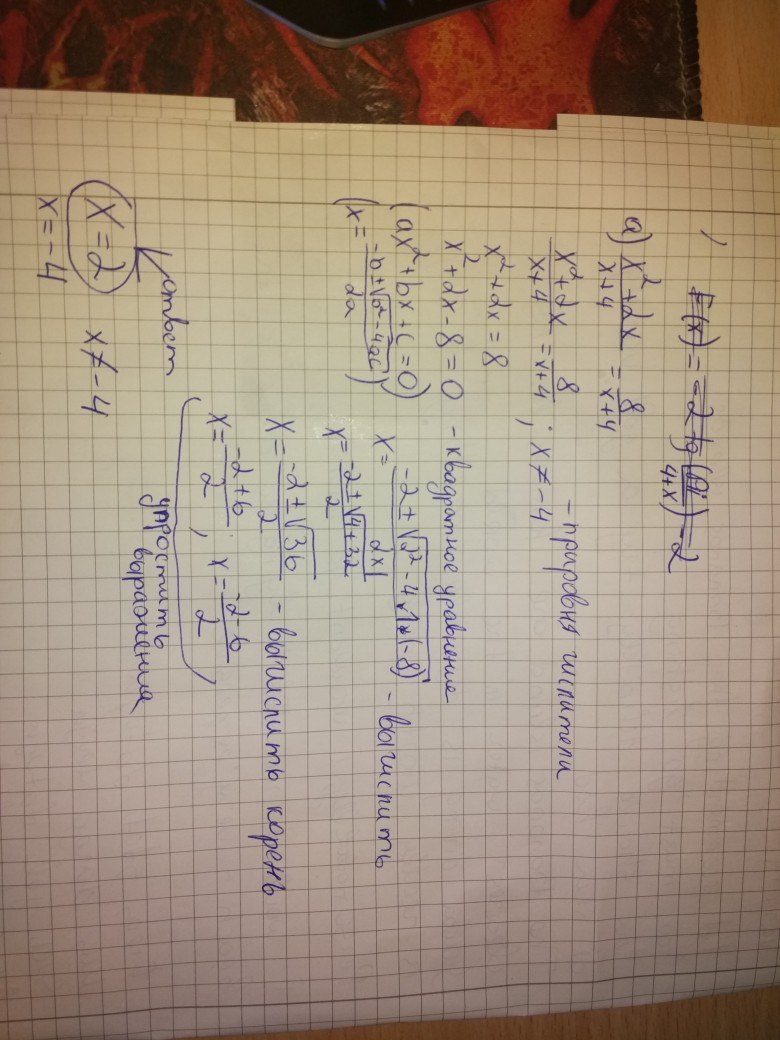 а) x²+2x/x+4 = 8/x+4
x²+2x/x+4 = 8/x+4 ; x≠-4 - приравня числители
x²+2x=8
x²+2x-8=0 - квадратное уравнение
(ax²+bx+c=0)
(x= -b±√b²-4ac/2a)
x= -2±√2²-4*1*(-8)/2x1 - вычислить
x= -2±√4+32/2
x= -2±√36/2 - вычислить корень
x= -2+6/2 ; x= -2-6/2
упростить
выражения
ответ
x=2 x≠-4
x=-4